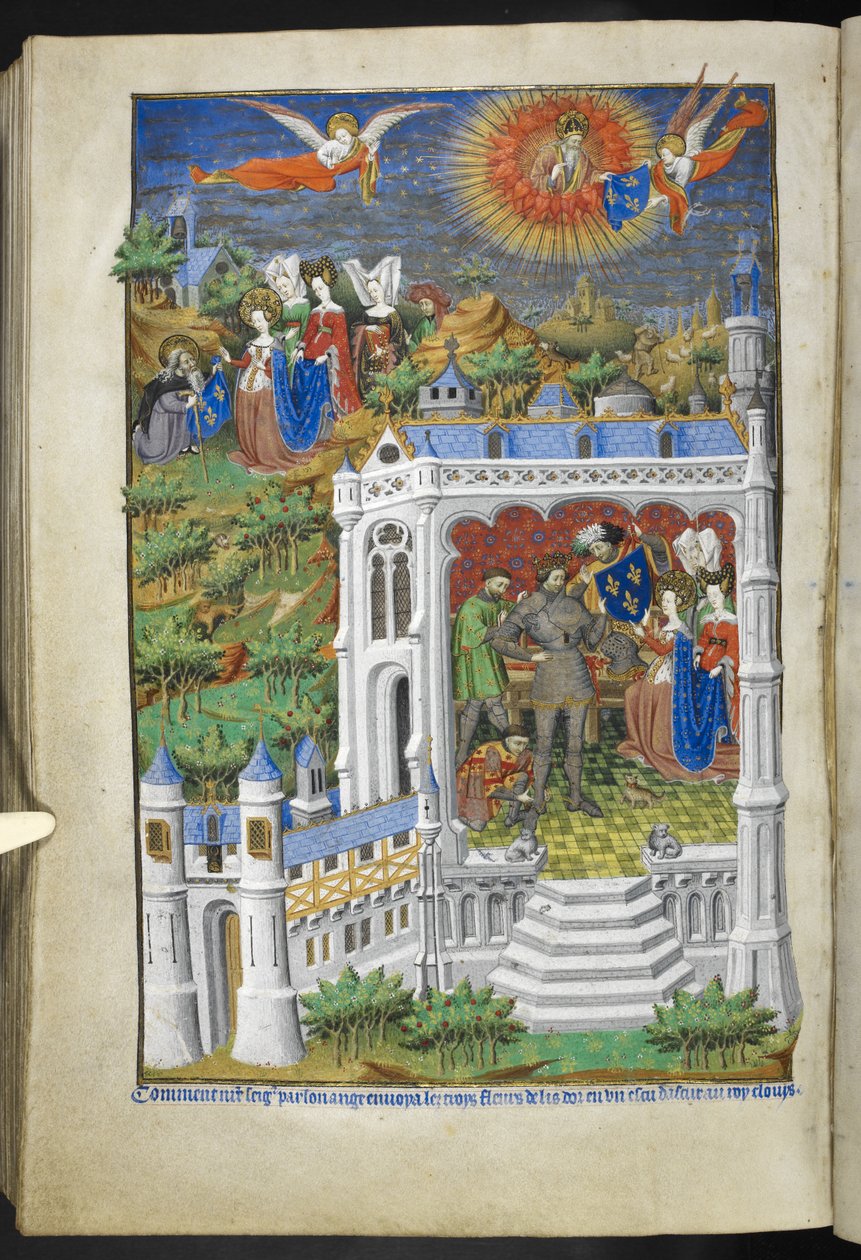 Comment nr̄e seigr par son ange envoya les troys fleurs de lis dor en un escu dasur au roy clouys.